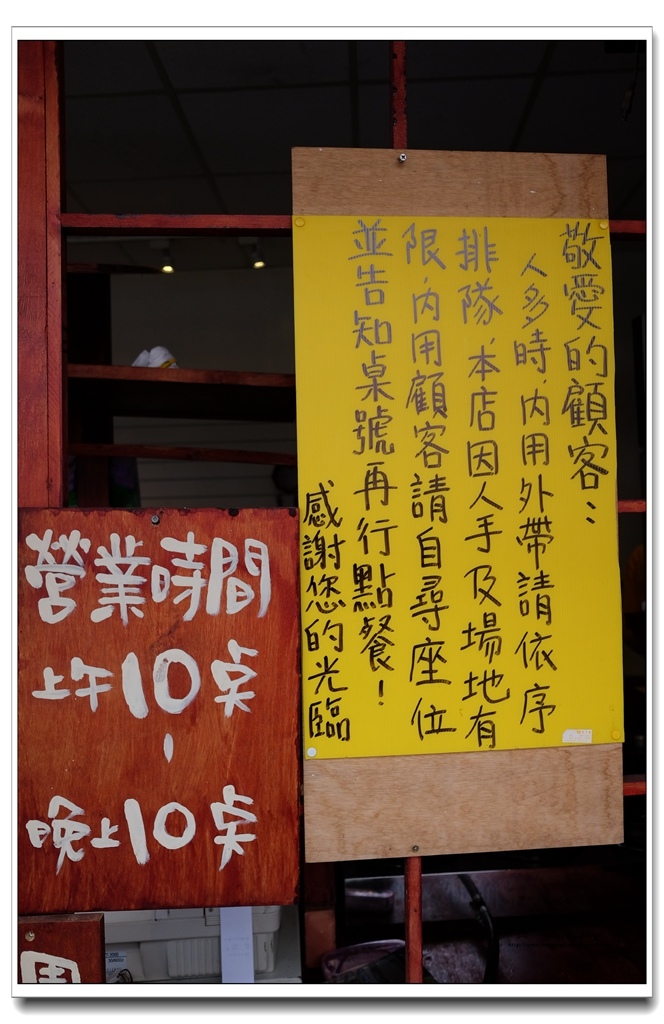 敬愛的顧客：
人多時，內用外帶請依序
排隊，本店因人手及場地有
限，內用顧客請自尋座位
並告知桌號再行點餐！
感謝您的光臨
營業時間
上午10点
-
晚上10点